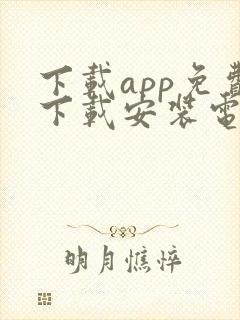 下载app免费
下载安装电
明月憔悴